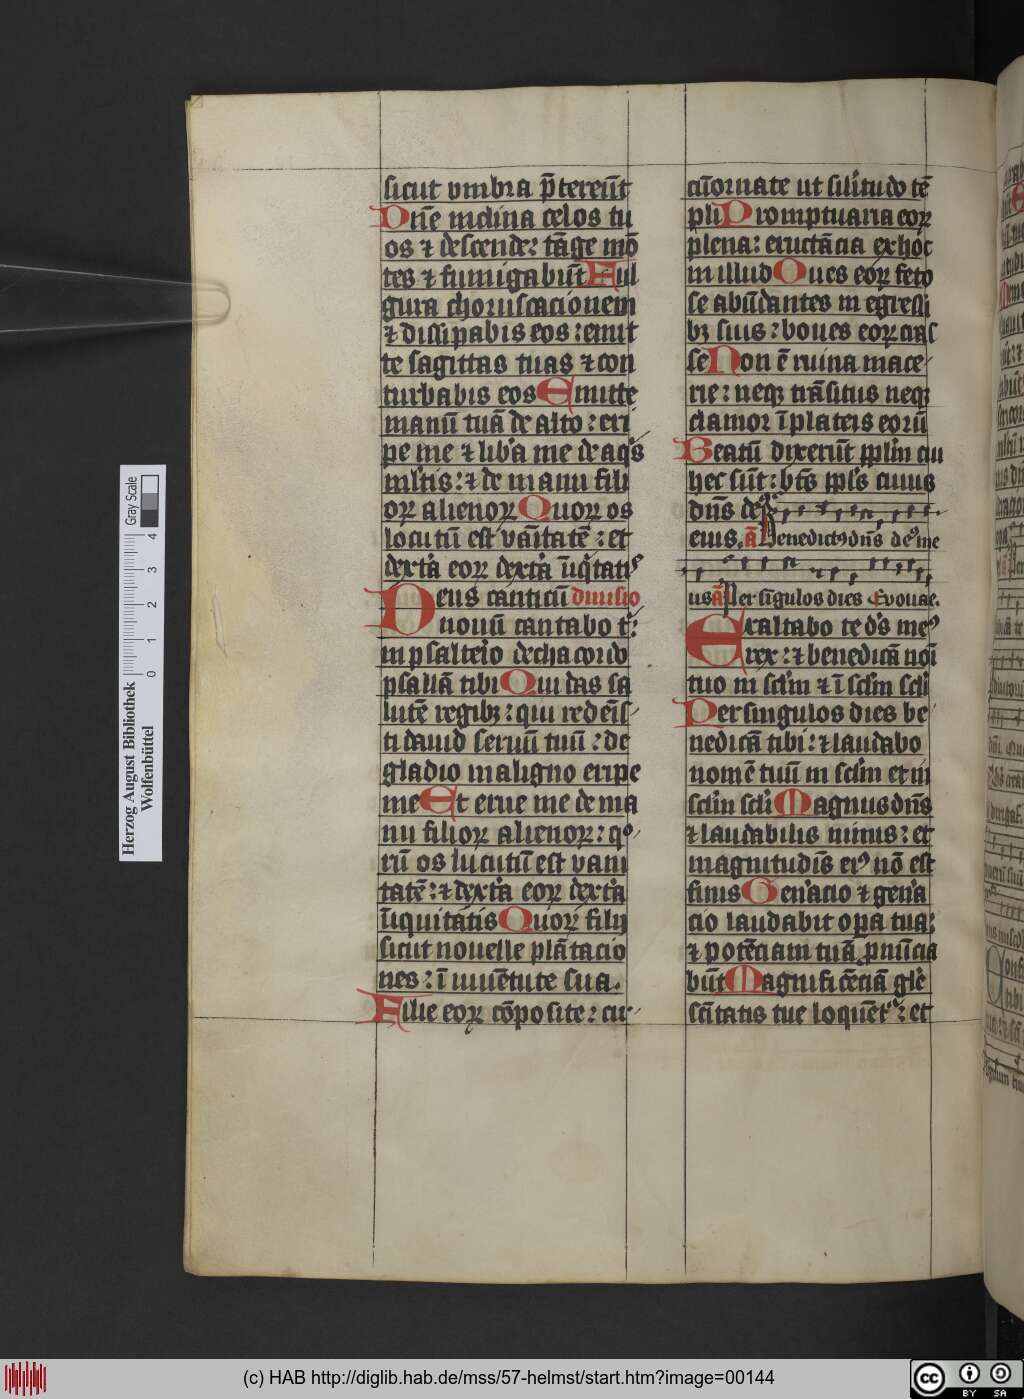 sicut vmbra p̄tereūt
Dn̄e inclina celos tu
os ⁊ descende: tāge mō
tes ⁊ fumigabūt Ful
gura choruscacionem
⁊ dissipabis eos: emit
te sagittas tuas ⁊ con
turbabis eos Emitte
manū tuā de alto: eri
pe me ⁊ lib'a me de aq's
ml'tis: ⁊ de manu fili
oꝝ alienoꝝ Quoꝝ os
locutū est vanitatē: et
dext'a eoꝝ dext'a īiq'tatis
Deus canticū diuisio
nouū cantabo t':
in psalterio dechacordo
psallā tibi Qui das sa
lutē regibꝫ: qui redēis
ti dauid seruū tuū: de
gladio maligno eripe
me Et erue me de ma
nu filioꝝ alienoꝝ: qo
rū os lucutū est vani
tatē: ⁊ dext'a eoꝝ dext'a
īiquitatis Quoꝝ filij
sicut nouelle plātacio
nes: ī iuuētute sua.
Filie eoꝝ cōposite: cir
cūornate ut sil'itudo tē
pli Promptuaria eoꝝ
plena: eructācia ex hoc
in illud Oues eoꝝ feto
se abūdantes in egressi
bꝫ suis: boues eoꝝ cras
se Non ē ruina mace
rie: neqꝫ trāsitus neqꝫ
clamor ī plateis eorū
Beatū dixerūt ppl'm cui
hec sūt: bt's ppl's cuius
dn̄s de9
eius. ā Benedict9 dn̄s de9 me
us ā Per sīgulos dies Evouae.
Exaltabo te d's me9
rex: ⁊ benedicā noī
tuo in sc'lm ⁊ ī sc'lm sc'li
Per singulos dies be
nedicā tibi: ⁊ laudabo
nomē tuū in sc'lm et in
sc'lm sc'li Magnus dn̄s
⁊ laudabilis nimis: et
magnitudīs ei9 nō est
finis Gen'acio ⁊ gen'a
cio laudabit op'a tua:
⁊ potēciam tuā ꝓnūcia
būt Magnificēciā gl'e
sc̄itatis tue loquēt': et
Herzog August Bibliothek
Wolfenbüttel
Gray Scale
0 1 2 3 4
(c) HAB http://diglib.hab.de/mss/57-helmst/start.htm?image=00144
cc BY SA